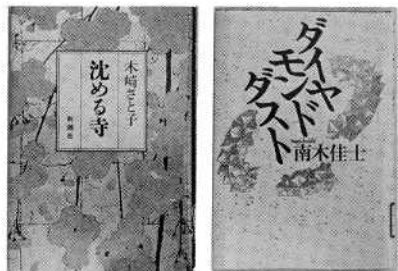 木崎さと子
沈める寺
新潮社
ダイヤ
モンド
ダスト
南木佳士